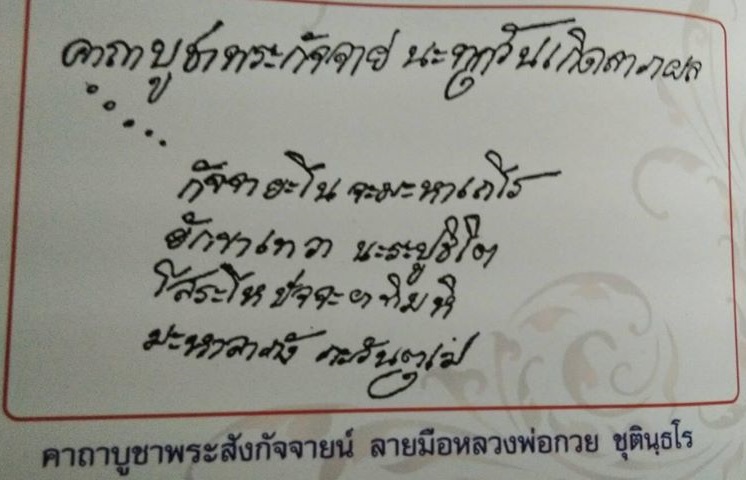 คาถาบูชาพระกัจจาย นะทุกวันเกิดลาภผล
กัจจายะโน จะมะหาเถโร
ยักขาเทวา นะระปูชิโต
โสระโห ปัจจะยาทิมหิ
มะหาลาภัง ภะวันตุเม
คาถาบูชาพระสังกัจจายน์ ลายมือหลวงพ่อกวย ชุตินฺธโร